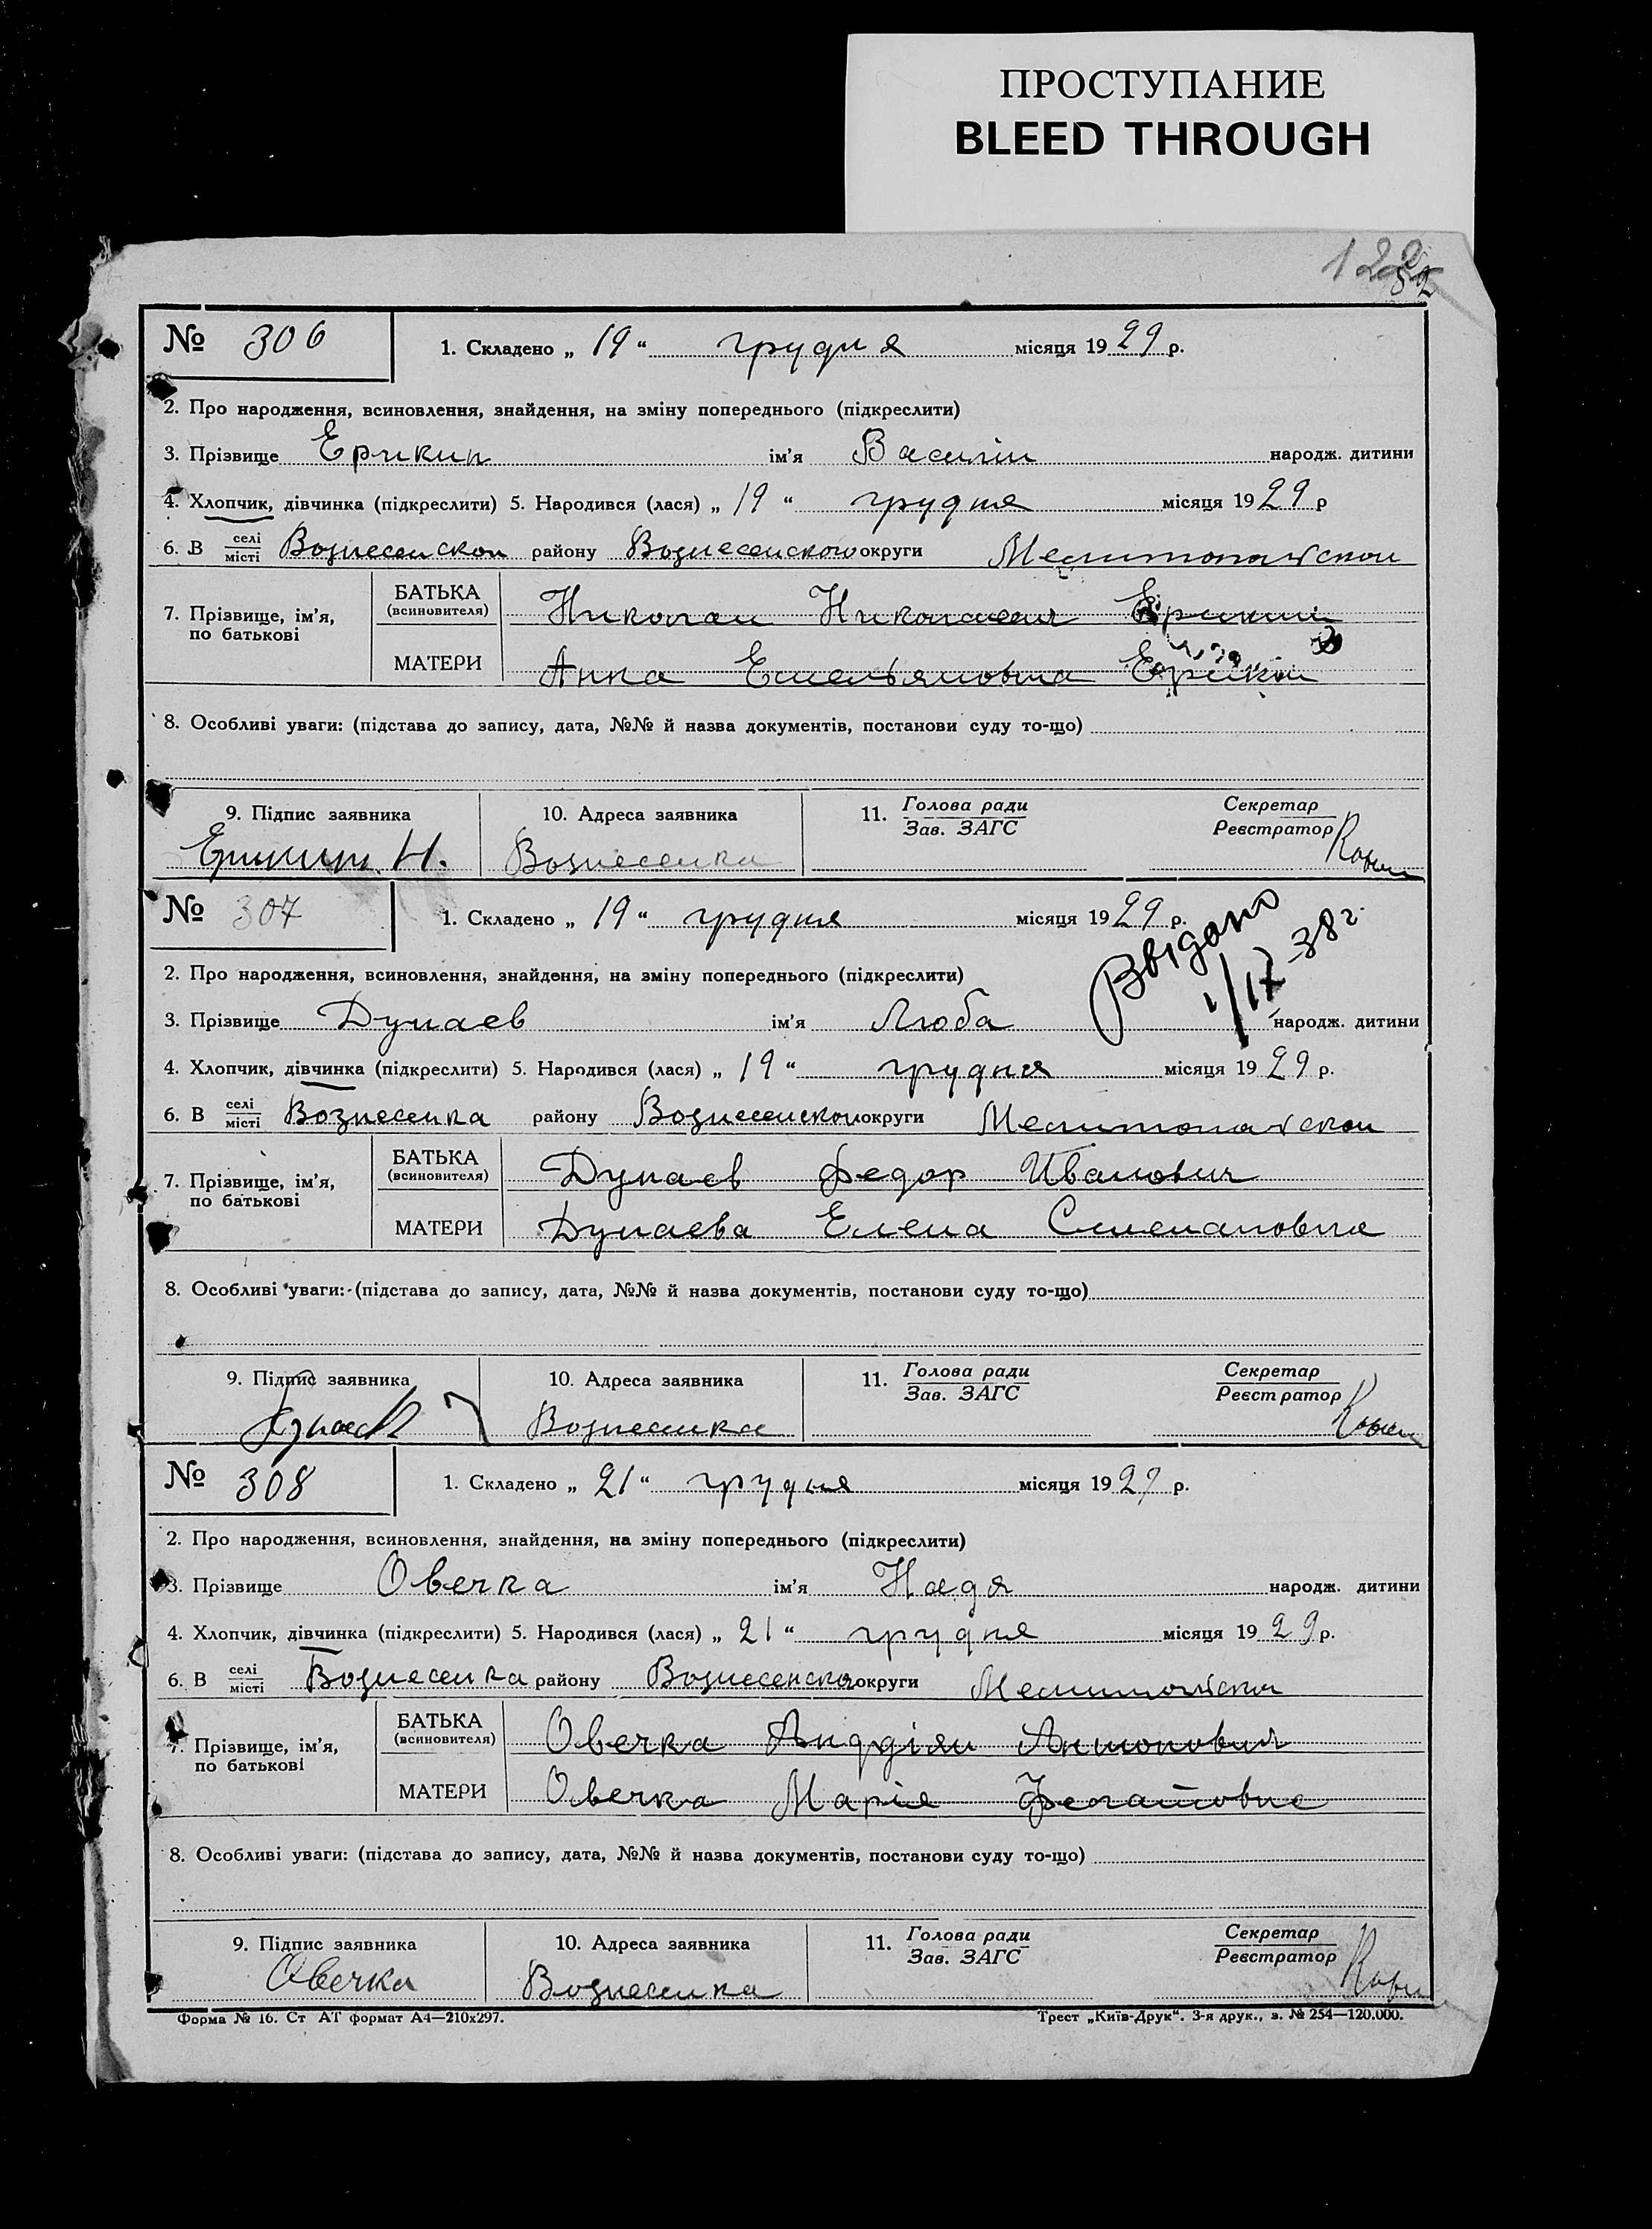 ПРОСТУПАНИЕ
BLEED THROUGH
№ 306 1. Складено „ 19 “ грудня місяця 1929 р.
2. Про народження, всиновлення, знайдення, на зміну попереднього (підкреслити)
3. Прізвище Ерикин ім’я Василий народж. дитини
4. Хлопчик, дівчинка (підкреслити) 5. Народився (лася) „ 19 “ грудня місяця 1929 р
6. В селі місті Вознесенской району Вознесенского округи
7. Прізвище, ім’я, по батькові
БАТЬКА (всиновителя) Николай Николаевич
МАТЕРИ Анна Емельяновна
8. Особливі уваги: (підстава до запису, дата, №№ й назва документів, постанови суду то-що)
9. Підпис заявника 10. Адреса заявника 11. Голова ради Зав. ЗАГС Секретар Реєстратор
Н. Вознесенка
№ 307 1. Складено „ 19 “ грудня місяця 1929 р.
Выдано
38 г.
2. Про народження, всиновлення, знайдення, на зміну попереднього (підкреслити)
3. Прізвище Дунаев ім’я Люба народж. дитини
4. Хлопчик, дівчинка (підкреслити) 5. Народився (лася) „ 19 “ грудня місяця 1929 р.
6. В селі місті Вознесенка району Вознесенского округи
7. Прізвище, ім’я, по батькові
БАТЬКА (всиновителя) Дунаев Федор Иванович
МАТЕРИ Дунаева Елена Степановна
8. Особливі уваги: (підстава до запису, дата, №№ й назва документів, постанови суду то-що)
9. Підпис заявника 10. Адреса заявника 11. Голова ради Зав. ЗАГС Секретар Реєстратор
Вознесенка
№ 308 1. Складено „ 21 “ грудня місяця 1929 р.
2. Про народження, всиновлення, знайдення, на зміну попереднього (підкреслити)
3. Прізвище Овечка ім’я Надя народж. дитини
4. Хлопчик, дівчинка (підкреслити) 5. Народився (лася) „ 21 “ грудня місяця 1929 р.
6. В селі місті Вознесенка району округи
7. Прізвище, ім’я, по батькові
БАТЬКА (всиновителя) Овечка Андріян Антонович
МАТЕРИ Овечка Марія
8. Особливі уваги: (підстава до запису, дата, №№ й назва документів, постанови суду то-що)
9. Підпис заявника 10. Адреса заявника 11. Голова ради Зав. ЗАГС Секретар Реєстратор
Овечка Вознесенка
Форма № 16. Ст АТ формат А4—210х297. Трест „Київ-Друк“. 3-я друк., з. № 254—120.000.